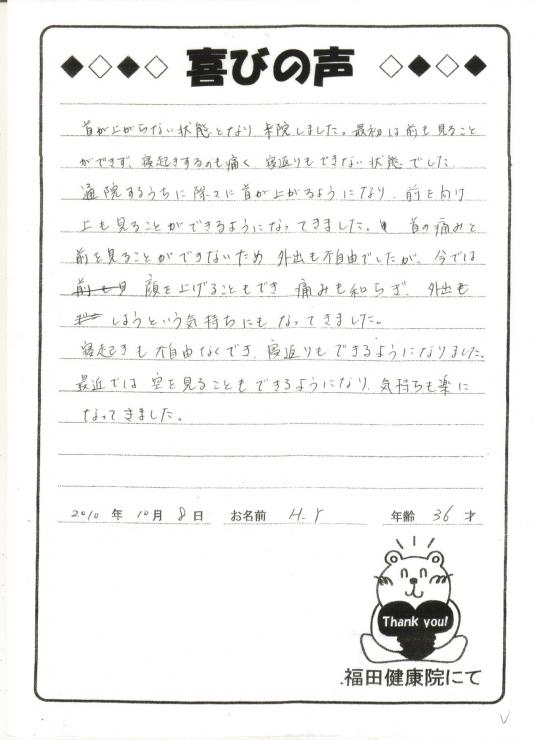 ◆◇◆◇ 喜びの声 ◇◆◇◆
首が上がらない状態となり来院しました。最初は前も見ること
ができず、寝起きするのも痛く、寝返りもできない状態でした。
通院するうちに除々に首が上がるようになり、前を向け
上も見ることができるようになってきました。首の痛みと
前を見ることができないため外出も不自由でしたが、今では
顔を上げることもでき 痛みも和らぎ、外出も
しようという気持ちにもなってきました。
寝起きも不自由なくでき、寝返りもできるようになりました。
最近では空を見ることもできるようになり、気持ちも楽に
なってきました。
2010 年 10月 8日 お名前 H.Y 年齢 36 才
Thank you!
福田健康院にて